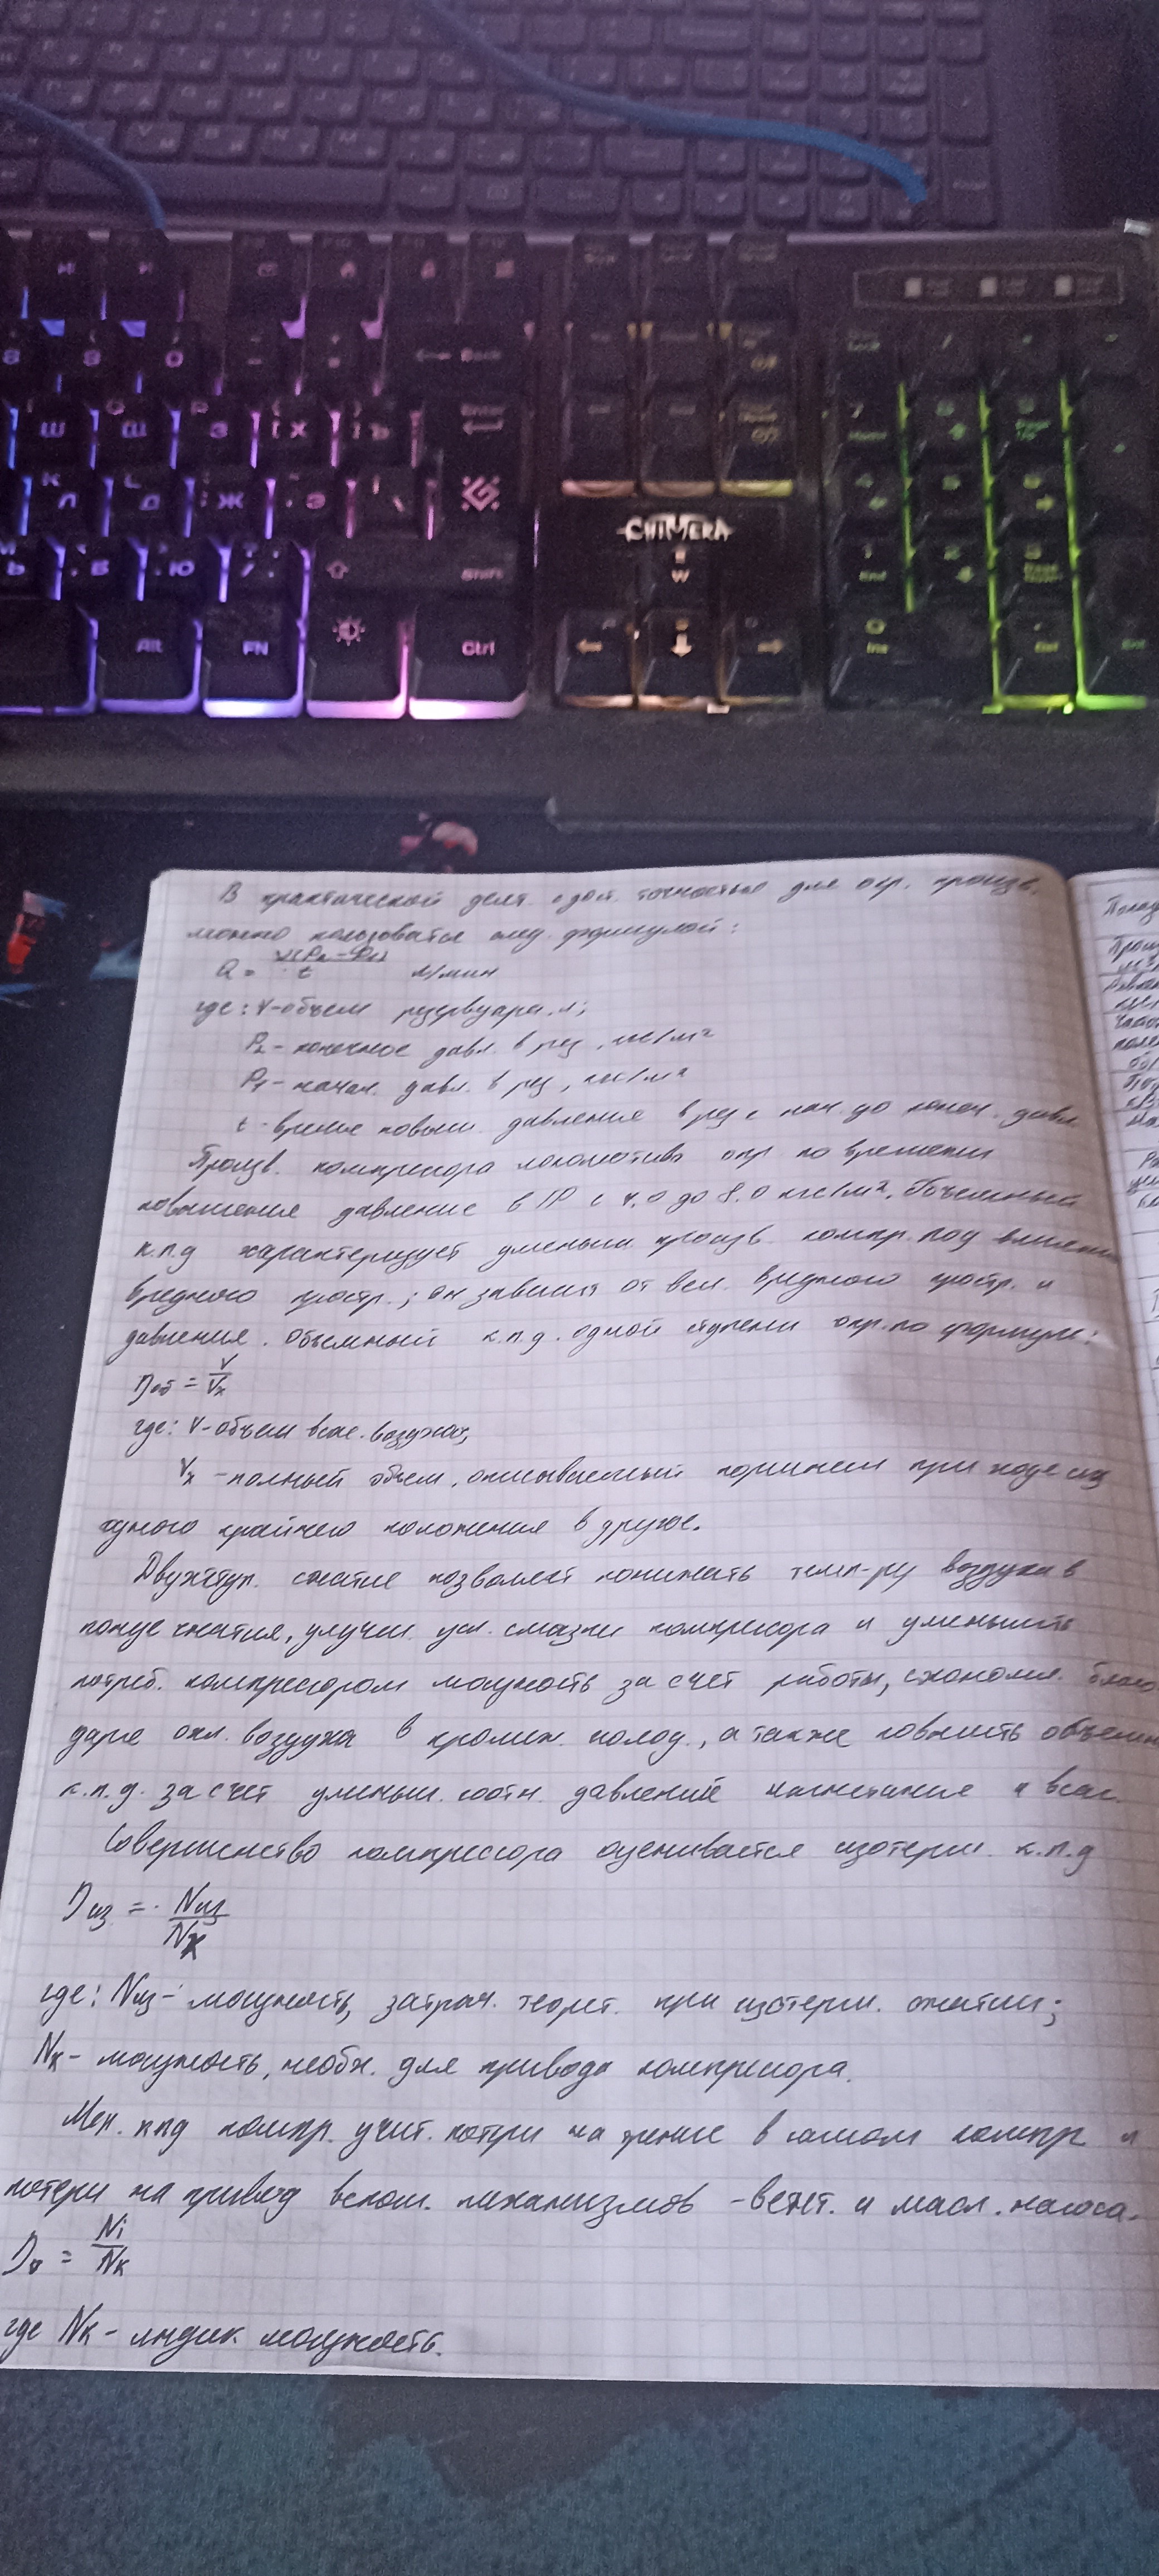 ← Back
Enter
Shift
Alt
FN
Ctrl
CHIMERA
W
В практической деят. с дост. точностью для опр. произв.
можно пользоваться след. формулой:
Q = V(P₂-P₁)/t л/мин
где: V-объем резервуара, л;
P₂ - конечное давл. в рез, кгс/м²
P₁ - начал. давл. в рез, кгс/м²
t - время повыш. давления в рез с нач. до конеч. давл.
Произв. компрессора локомотива опр по времени
повышения давление в ГР с 7.0 до 8.0 кгс/м². Объемный
к.п.д характеризует уменьш. произв. компр. под влиянием
вредного простр.; он зависит от вел. вредного простр. и
давления. Объемный к.п.д. одной ступени опр. по формуле:
ηоб = V/Vx
где: V-объем всас. воздуха;
Vx - полный объем, описываемый поршнем при ходе из
одного крайнего положения в другое.
Двухступ. сжатие позволяет понижать темп-ру воздуха в
конце сжатия, улучш. усл. смазки компрессора и уменьшить
потреб. компрессором мощность за счет работы, сэконом. благо
даря охл. воздуха в промеж. холод., а также повысить объемн
к.п.д. за счет уменьш. соотн. давлений нагнетания и всас.
Совершенство компрессора оценивается изотерм. к.п.д
ηиз = Nиз/Nк
где: Nиз - мощность, затрач. теорет. при изотерм. сжатии;
Nк - мощность, необх. для привода компрессора.
Мех. кпд компр. учит. потери на трение в самом компр и
потери на привод вспом. механизмов - вент. и масл. насоса.
= Ni/Nк
где Nк - индик. мощность.